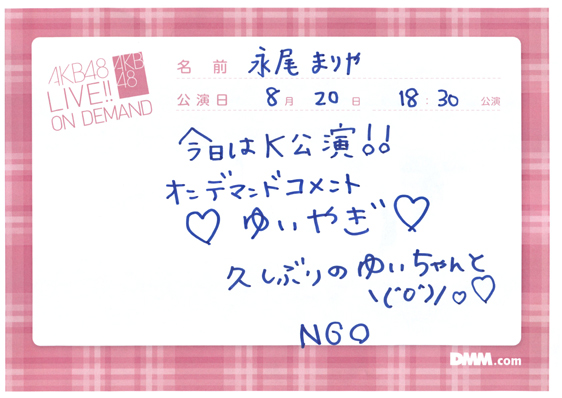 AKB48
LIVE!!
ON DEMAND
AKB
48
名前 永尾まりや
公演日 8月 20日 18:30 公演
今日はK公演!!
オンデマンドコメント
♡ ゆいやぎ ♡
久しぶりのゆいちゃんと
\(^o^)/♡♡
NGO
DMM.com